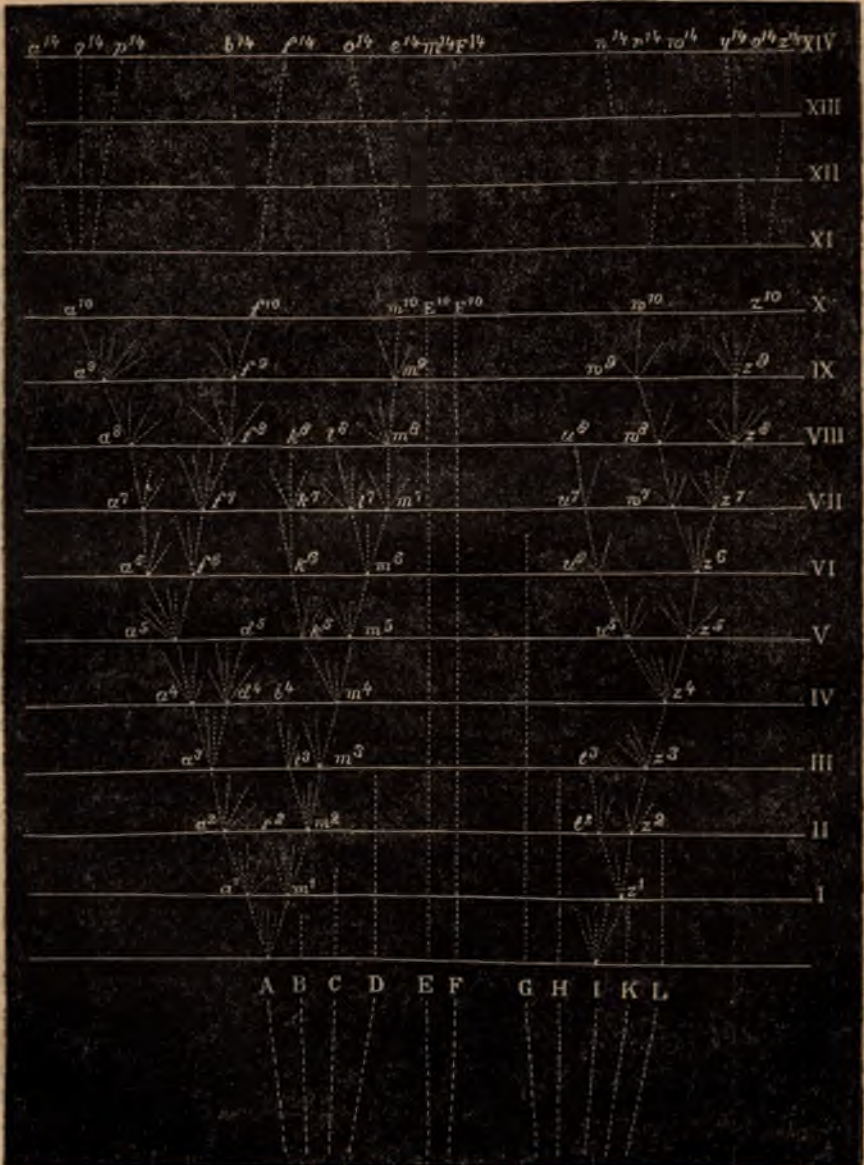 a¹⁴ q¹⁴ p¹⁴ b¹⁴ f¹⁴ o¹⁴ e¹⁴ m¹⁴ F¹⁴ n¹⁴ r¹⁴ w¹⁴ y¹⁴ v¹⁴ z¹⁴ XIV
XIII
XII
XI
a¹⁰ f¹⁰ m¹⁰ E¹⁰ F¹⁰ w¹⁰ z¹⁰ X
a⁹ f⁹ m⁹ w⁹ z⁹ IX
a⁸ f⁸ k⁸ l⁸ m⁸ u⁸ w⁸ z⁸ VIII
a⁷ f⁷ k⁷ l⁷ m⁷ u⁷ w⁷ z⁷ VII
a⁶ f⁶ k⁶ m⁶ u⁶ z⁶ VI
a⁵ d⁵ k⁵ m⁵ u⁵ z⁵ V
a⁴ d⁴ i⁴ m⁴ z⁴ IV
a³ i³ m³ t³ z³ III
a² m² t² z² II
a¹ m¹ z¹ I
A B C D E F G H I K L